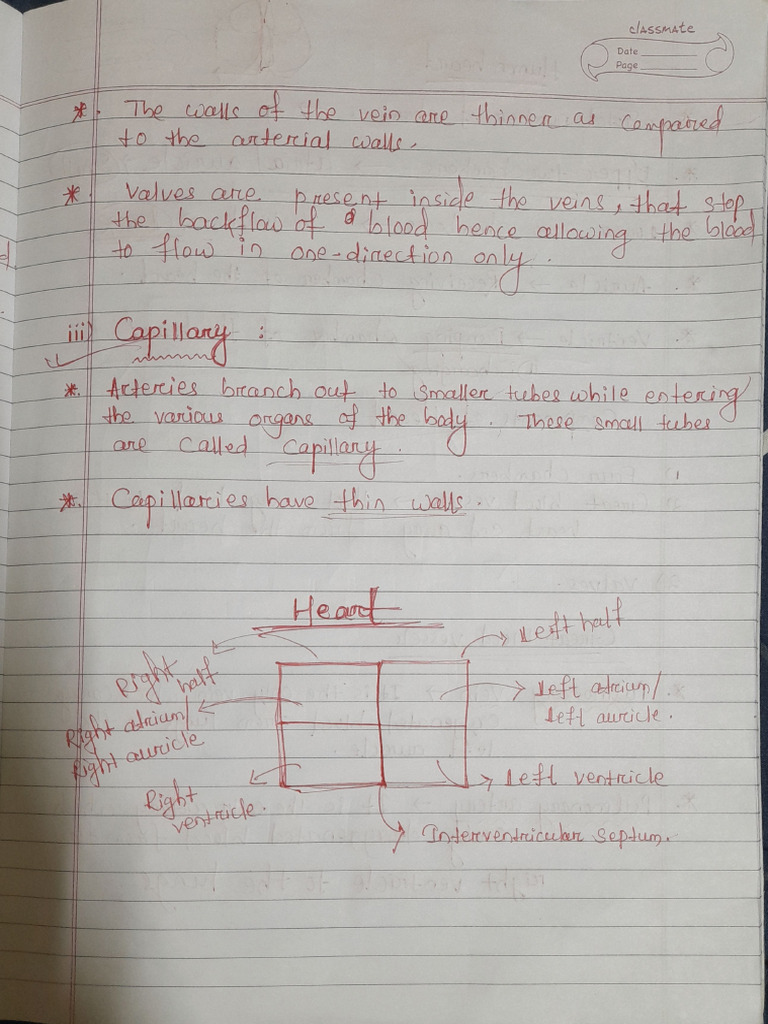 classmate
Date
Page
*. The walls of the vein are thinner as compared
to the arterial walls.
*. Valves are present inside the veins, that stop
the backflow of blood hence allowing the blood
to flow in one-direction only.
iii) Capillary :
*. Arteries branch out to smaller tubes while entering
the various organs of the body. These small tubes
are called capillary.
*. Capillaries have thin walls.
Heart
Left half
Right
half
Left atrium/
left auricle.
Right atrium/
Right auricle
Left ventricle
Right
ventricle.
Interventricular septum.